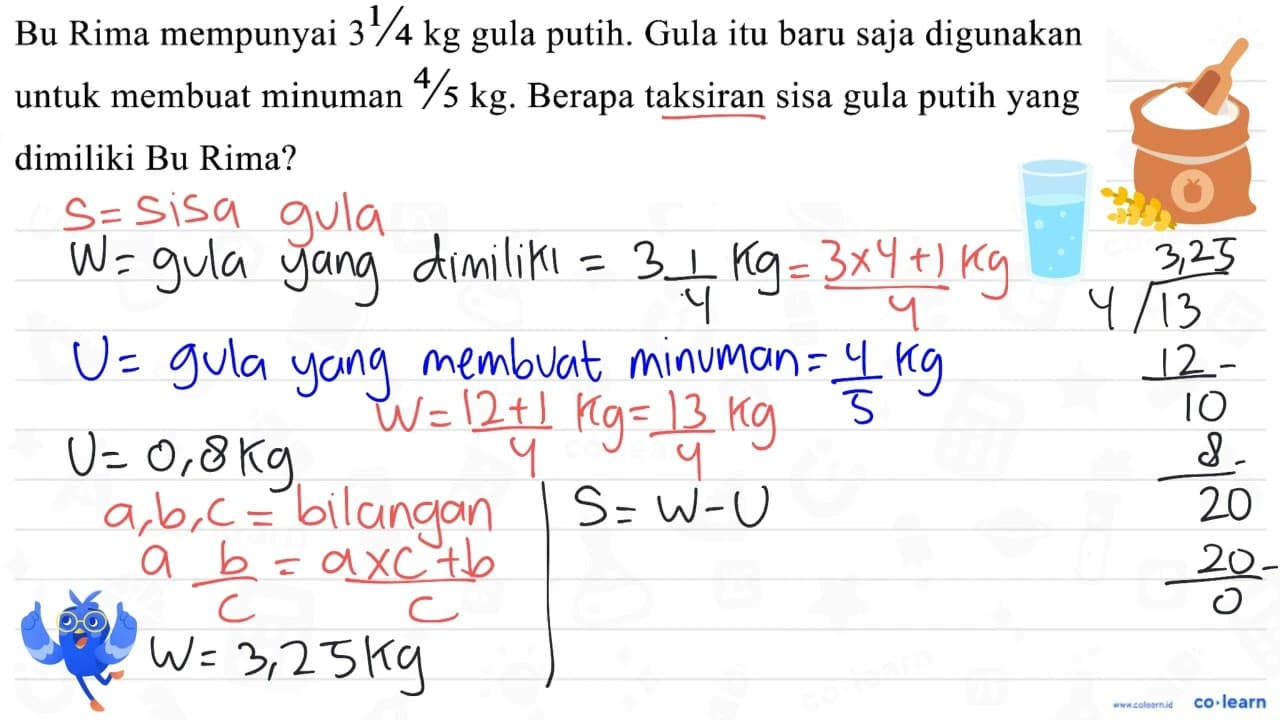 Bu Rima mempunyai 3 1/4 kg gula putih. Gula itu baru saja digunakan
untuk membuat minuman 4/5 kg. Berapa taksiran sisa gula putih yang
dimiliki Bu Rima?
S = sisa gula
W = gula yang dimiliki = 3 1/4 Kg = 3x4+1/4 Kg
U = gula yang membuat minuman = 4/5 Kg
W = 12+1/4 Kg = 13/4 Kg
U = 0,8 Kg
a,b,c = bilangan
a b/c = axc+b/c
W = 3,25 Kg
S = W-U
3,25
4/13
12-
10
8-
20
20-
0
www.colearn.id co·learn